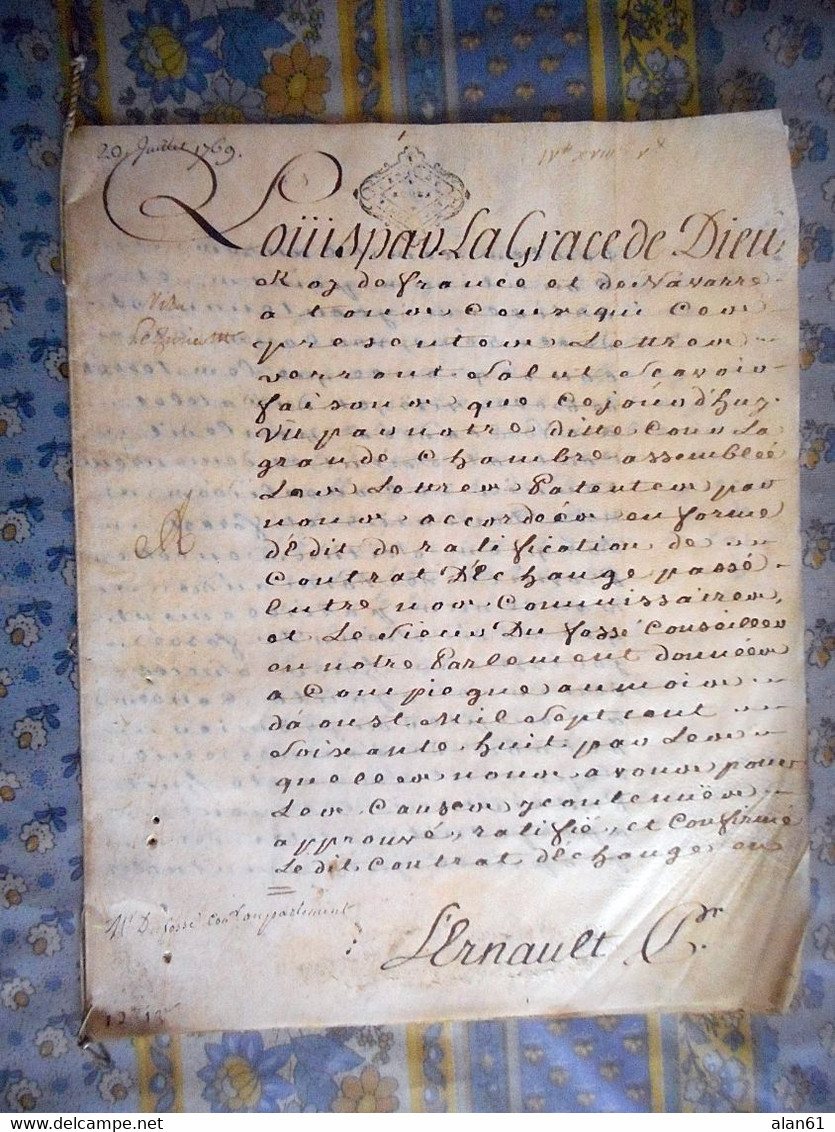 20 Juillet 1769.
Loüis par La Grace de Dieu
Roy de france et de Navarre
a tous Ceux qui Ces
presentes Lettres
verront Salut Scavoir
faisons que Cejourd'huy
Vû par notre ditte Cour La
grande Chambre assemblée
Les Lettres Patentes par
nous accordées en forme
d'Edit de ratification de
Contrat D'Echange passé
Entre nos Commissaires,
et Le Sieur Du fossé Conseiller
en notre Parlement données
a Compiegne au mois
d'aoust Mil Sept cent
Soixante huit par Les
quelles nous avons pour
Les Causes y contenües
approuvé, ratifié, et Confirmé
Ledit Contrat d'Echange en
Mr Dufossé conr au parlement
L'Ernault
alan61